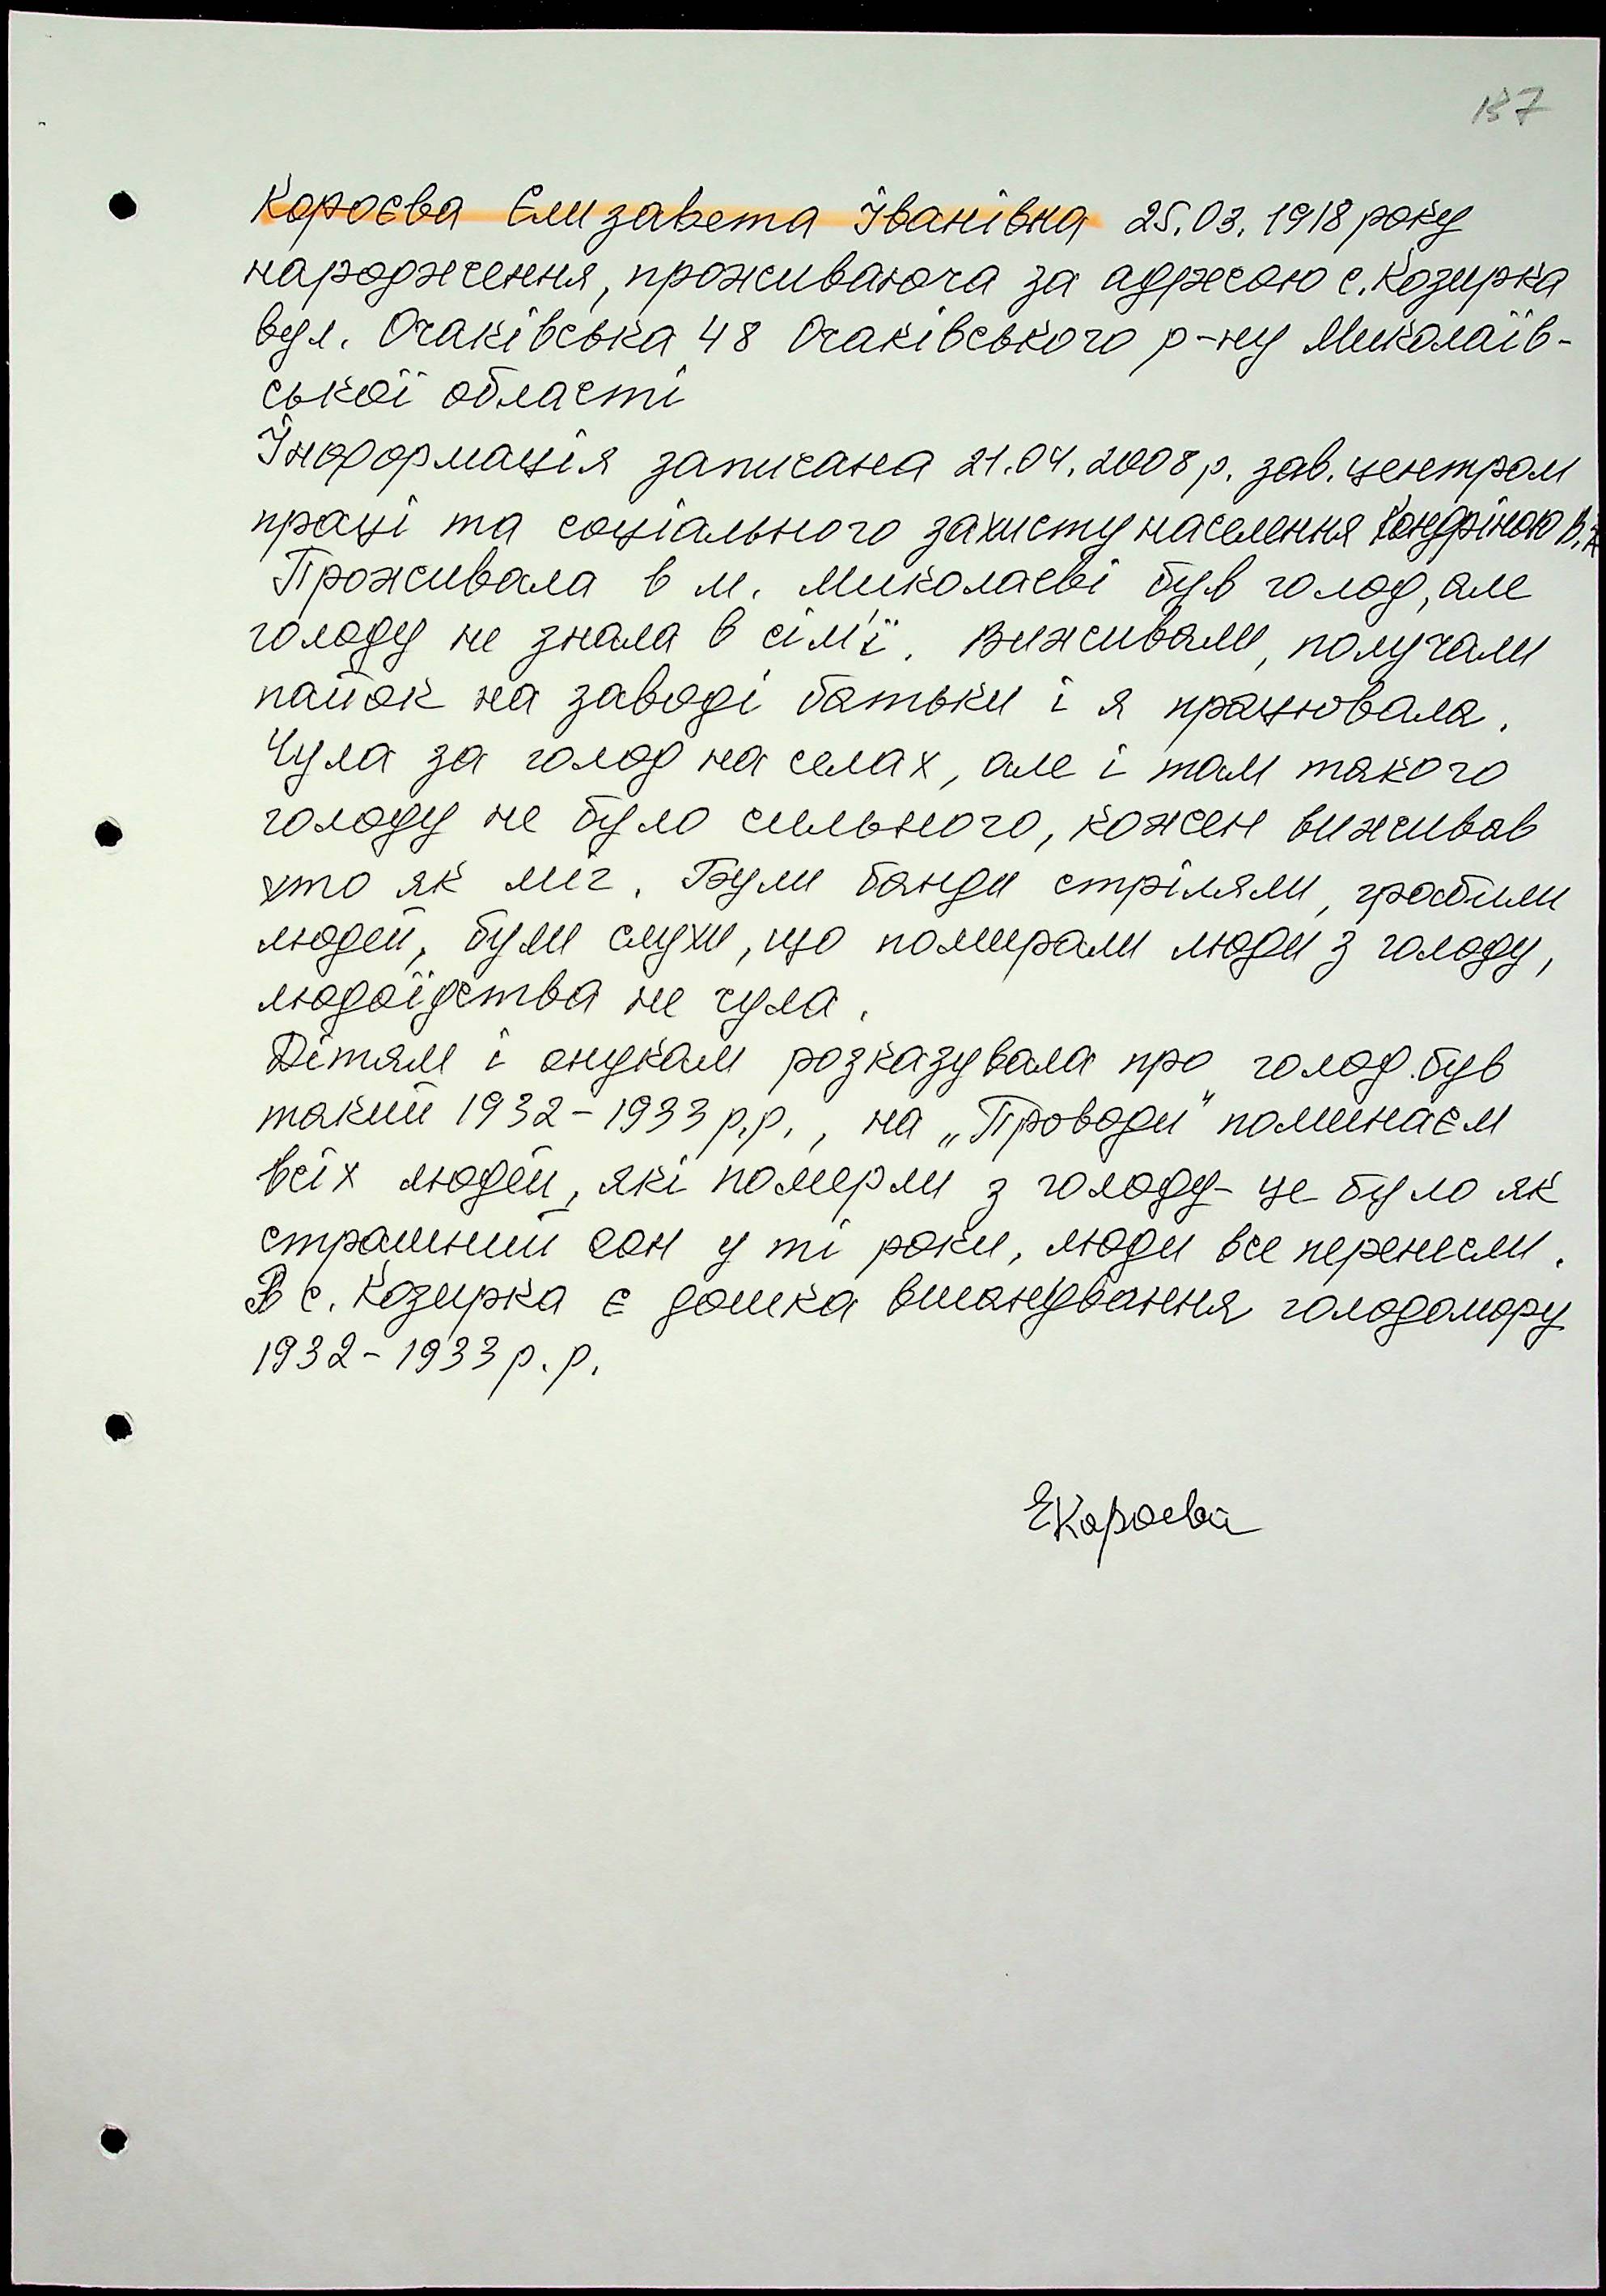 187
Короєва Єлизавета Іванівна 25.03.1918 року
народження, проживаюча за адресою с. Козирка
вул. Очаківська 48 Очаківського р-ну Миколаїв-
ської області
Інформація записана 21.04.2008 р. зав. центром
праці та соціального захисту населення В.
Проживала в м. Миколаєві був голод, але
голоду не знала в сім'ї. Виживали, получали
пайок на заводі батьки і я працювала.
Чула за голод на селах, але і там такого
голоду не було сильного, кожен виживав
хто як міг. Були банди стріляли, грабили
людей, були слухи, що помирали люди з голоду,
людоїдства не чула.
Дітям і онукам розказувала про голод був
такий 1932-1933 р.р., на „Проводи" поминаєм
всіх людей, які померли з голоду - це було як
страшний сон у ті роки, люди все перенесли.
В с. Козирка є дошка вшанування голодомору
1932-1933 р.р.
ЕКороева